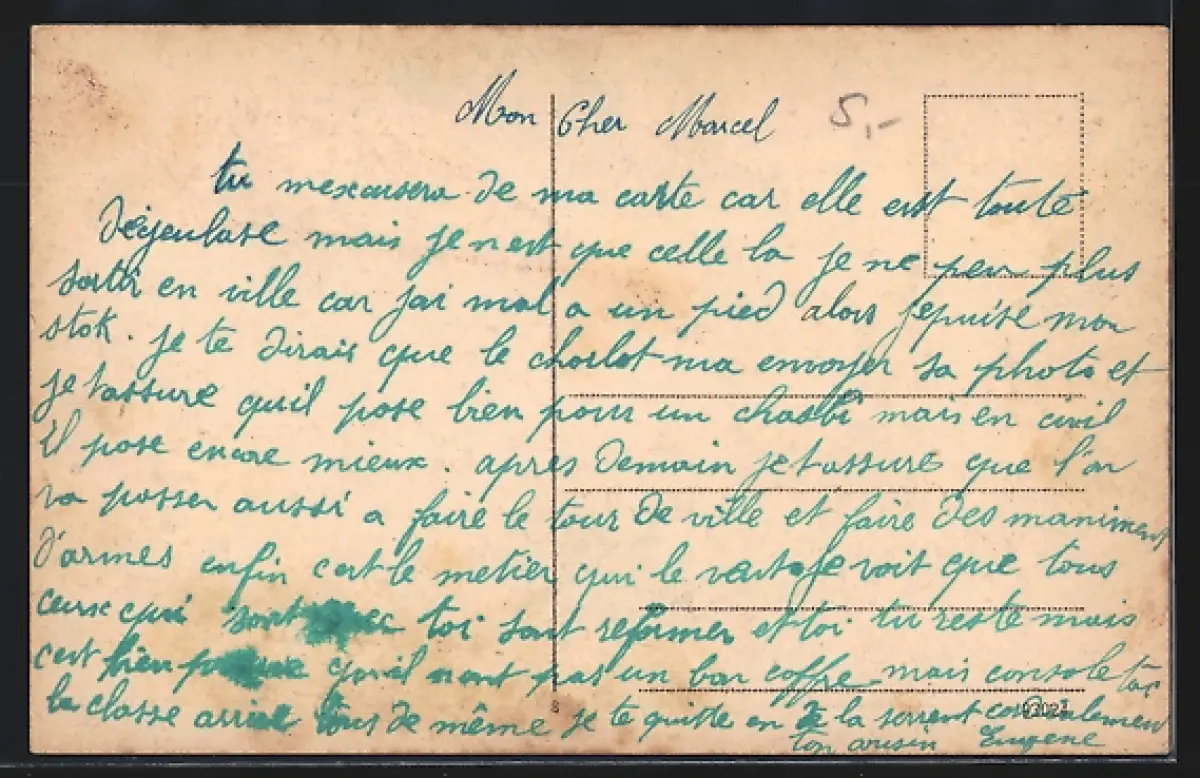 Mon Cher Marcel
5,-
tu mexcusera de ma carte car elle est toute
déjeulase mais je nest que celle la je ne peu plus
sortir en ville car jai mal a un pied alors jepuise mon
stok. je te dirais que le charlot ma envoyer sa photo et
je tassure quil pose bien pour un chasbi mais en civil
il pose encore mieux. apres demain je tassure que l'on
va passer aussi a faire le tour de ville et faire des maniment
d'armes enfin cest le metier qui le veut je voit que tous
ceux qui sont avec toi sont reformer et toi tu reste mais
cest bien quil nont pas un bon coffre mais console toi
la classe arrive tous de même je te quitte en te la serrent cordialement
ton cousin Eugene